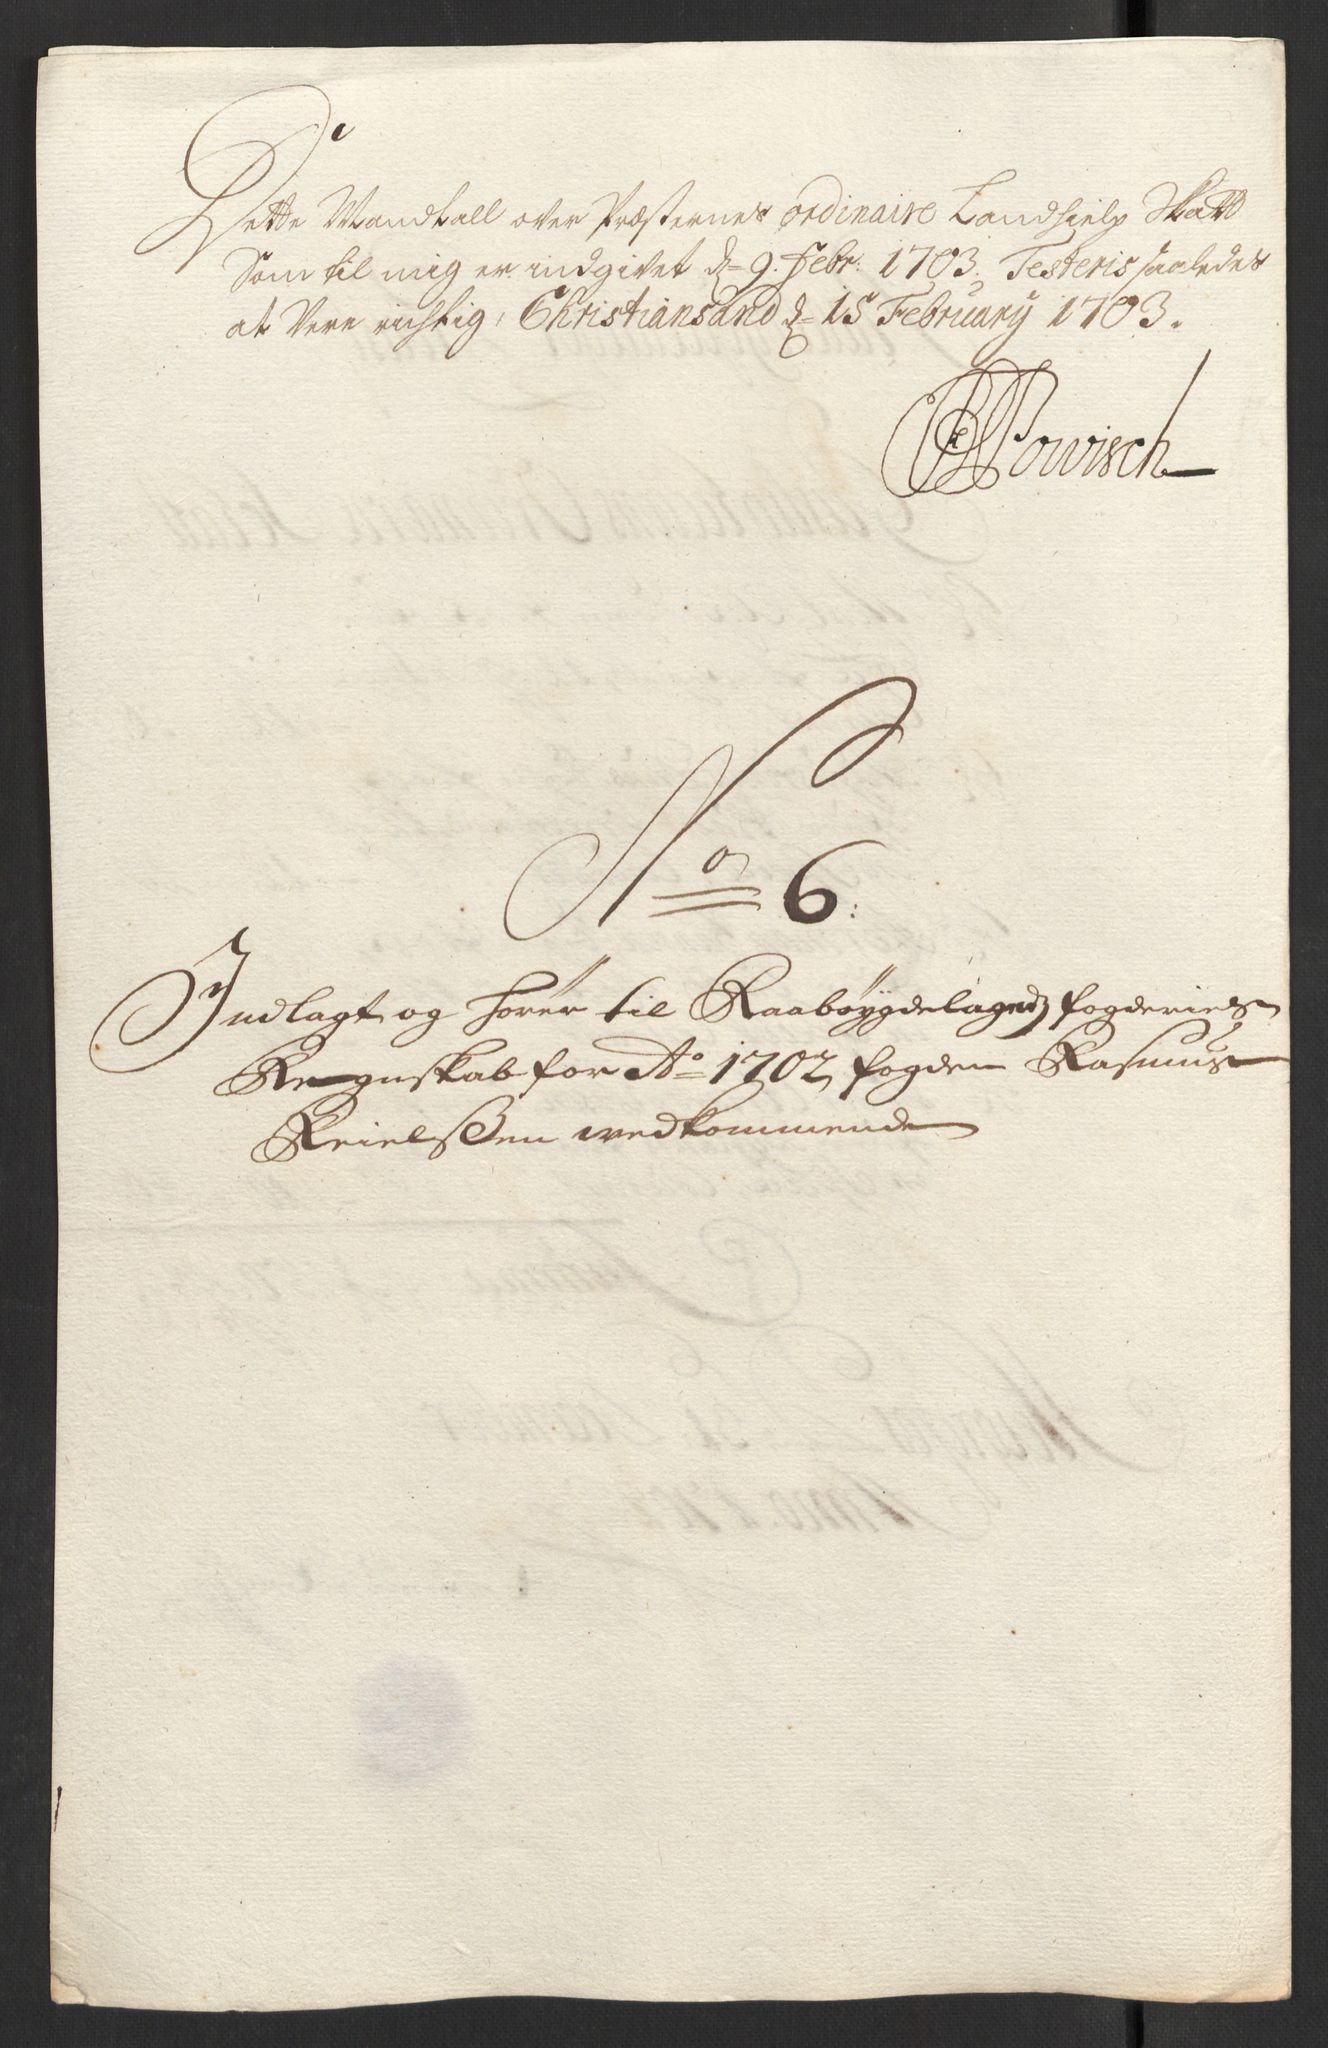 Dette Mandtall over Præsternes ordinaire Landhielp Skatt
Som til mig er indgivet d= 9. Febr: 1703. Testeris saaledes
at Vere richtig, Christiansand d= 15 February 1703.
Powisch
No 6:
Indlagt og hører til Raabøygdelagetz fogderies
Regnskab for Ao 1702 fogden Rasmus
Keielssen wedkommende